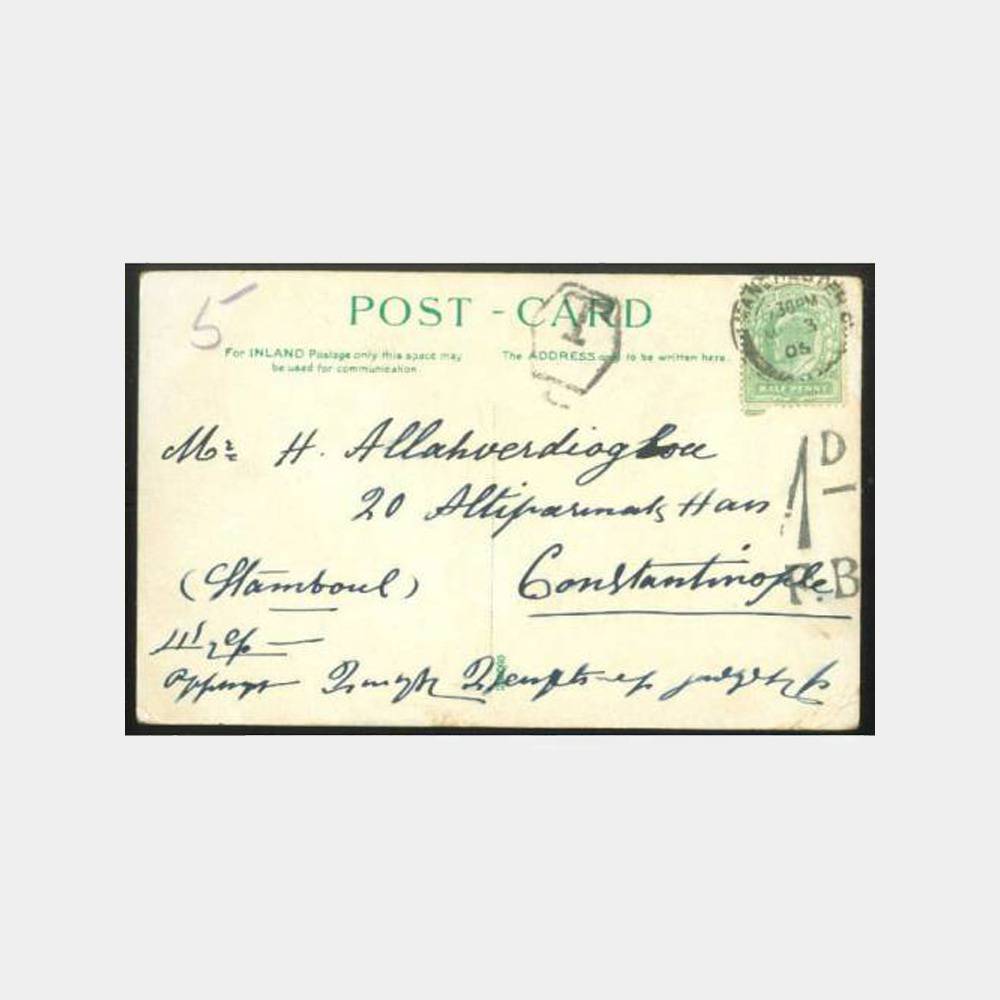 5
POST - CARD
T
For INLAND Postage only this space may
be used for communication
The ADDRESS only to be written here.
MANCHESTER
7 30 PM
3
05
HALF PENNY
Mr H. Allahverdioglou
20 Altiparmak Han
(Stamboul)
Constantinople
1D
F.B